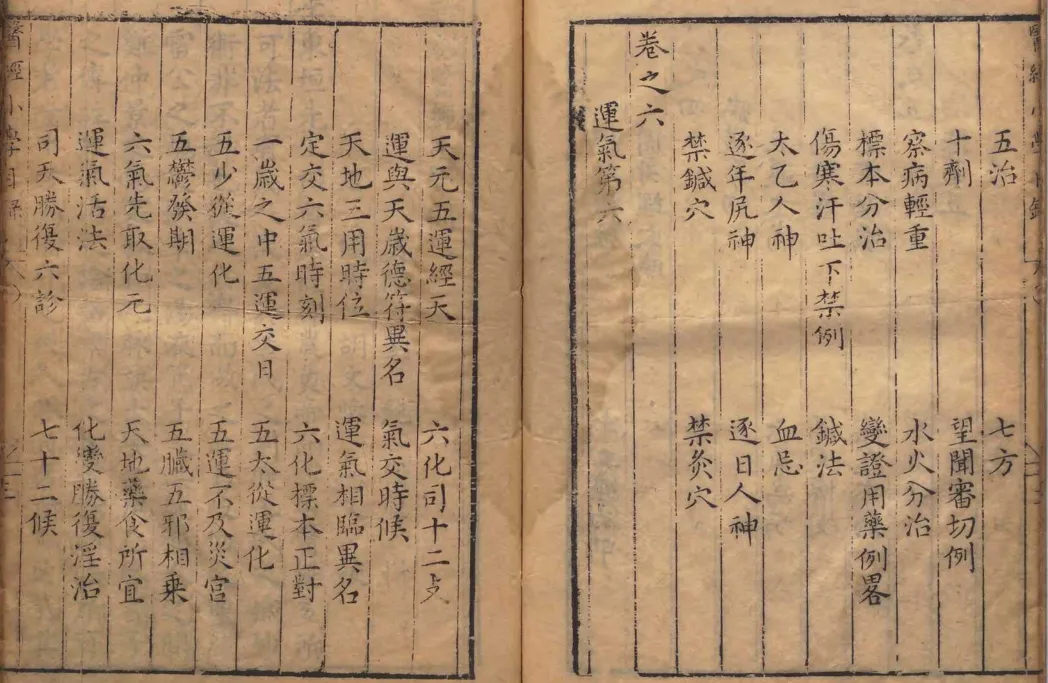 五治　七方
十劑　望聞審切例
察病輕重　水火分治
標本分治　變證用藥例畧
傷寒汗吐下禁例　鍼法
太乙人神　血忌
逐年尻神　逐日人神
禁鍼穴　禁灸穴
卷之六
運氣第六
天元五運經天　六化司十二攴
運與天歲德符異名　氣交時候
天地三用時位　運氣相臨異名
定交六氣時刻　六化標本正對
一歲之中五運交日　五太從運化
五少從運化　五運不及災宮
五鬱發期　五臟五邪相乘
六氣先取化元　天地藥食所宜
運氣活法　化變勝復淫治
司天勝復六診　七十二候
醫經小學目錄